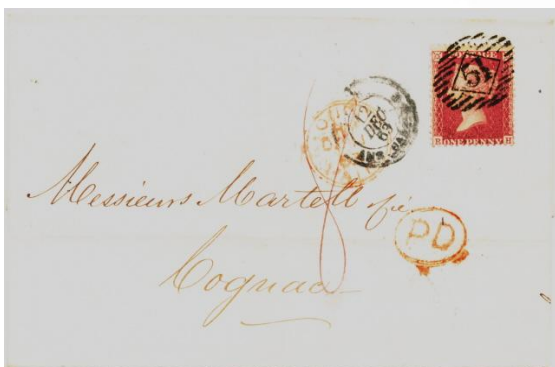 51
ONE PENNY
12
DEC
63
Messieurs Martell
PD
Cognac